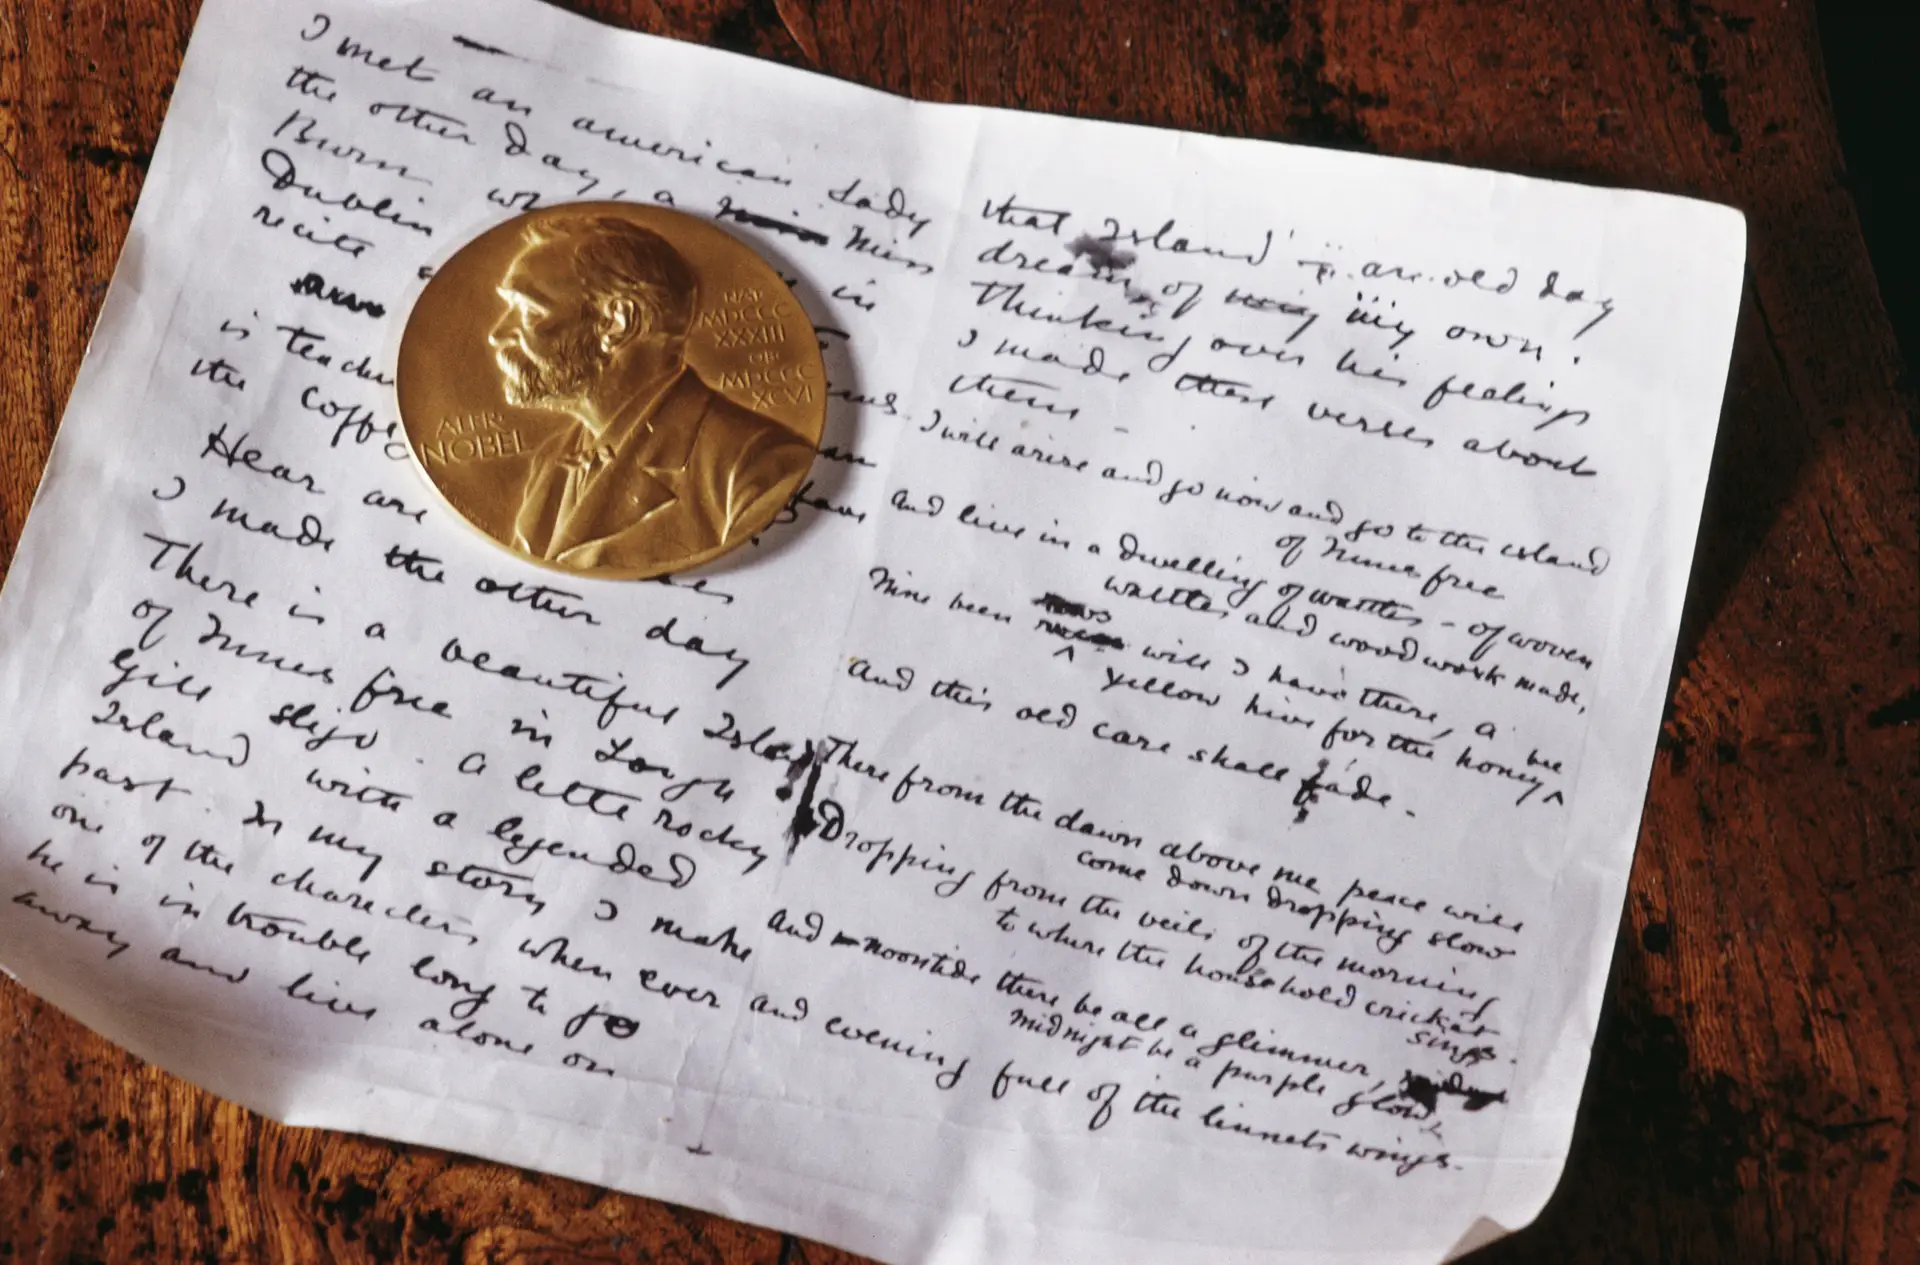 I met an american Lady
the other day, a Miss
Burn in
Dublin
recite
is teachi
the coffe
Hear are
I made the other day
There is a beautiful Island
of Innis free in Lough
Gill Sligo. A little rocky
Island with a legended
past. In my story I make
one of the characters when ever
he is in trouble long to go
away and live alone on
ALFR.
NOBEL
NAT.
MDCCC
XXXIII
OB.
MDCCC
XCVI
that Island – an old day
dream of my my own.
Thinking over his feelings
I made these verses about
them –
I will arise and go now and go to the island
of Innis free
And live in a dwelling of wattles – of woven
wattles and wood work made,
Nine been rows will I have there, a
yellow hive for the honey bee
And this old care shall fade.
There from the dawn above me peace will
come down dropping slow
Dropping from the veils of the morning
to where the household cricket
sings.
And noontide there be all a glimmer,
midnight be a purple glow,
And evening full of the linnets wings.